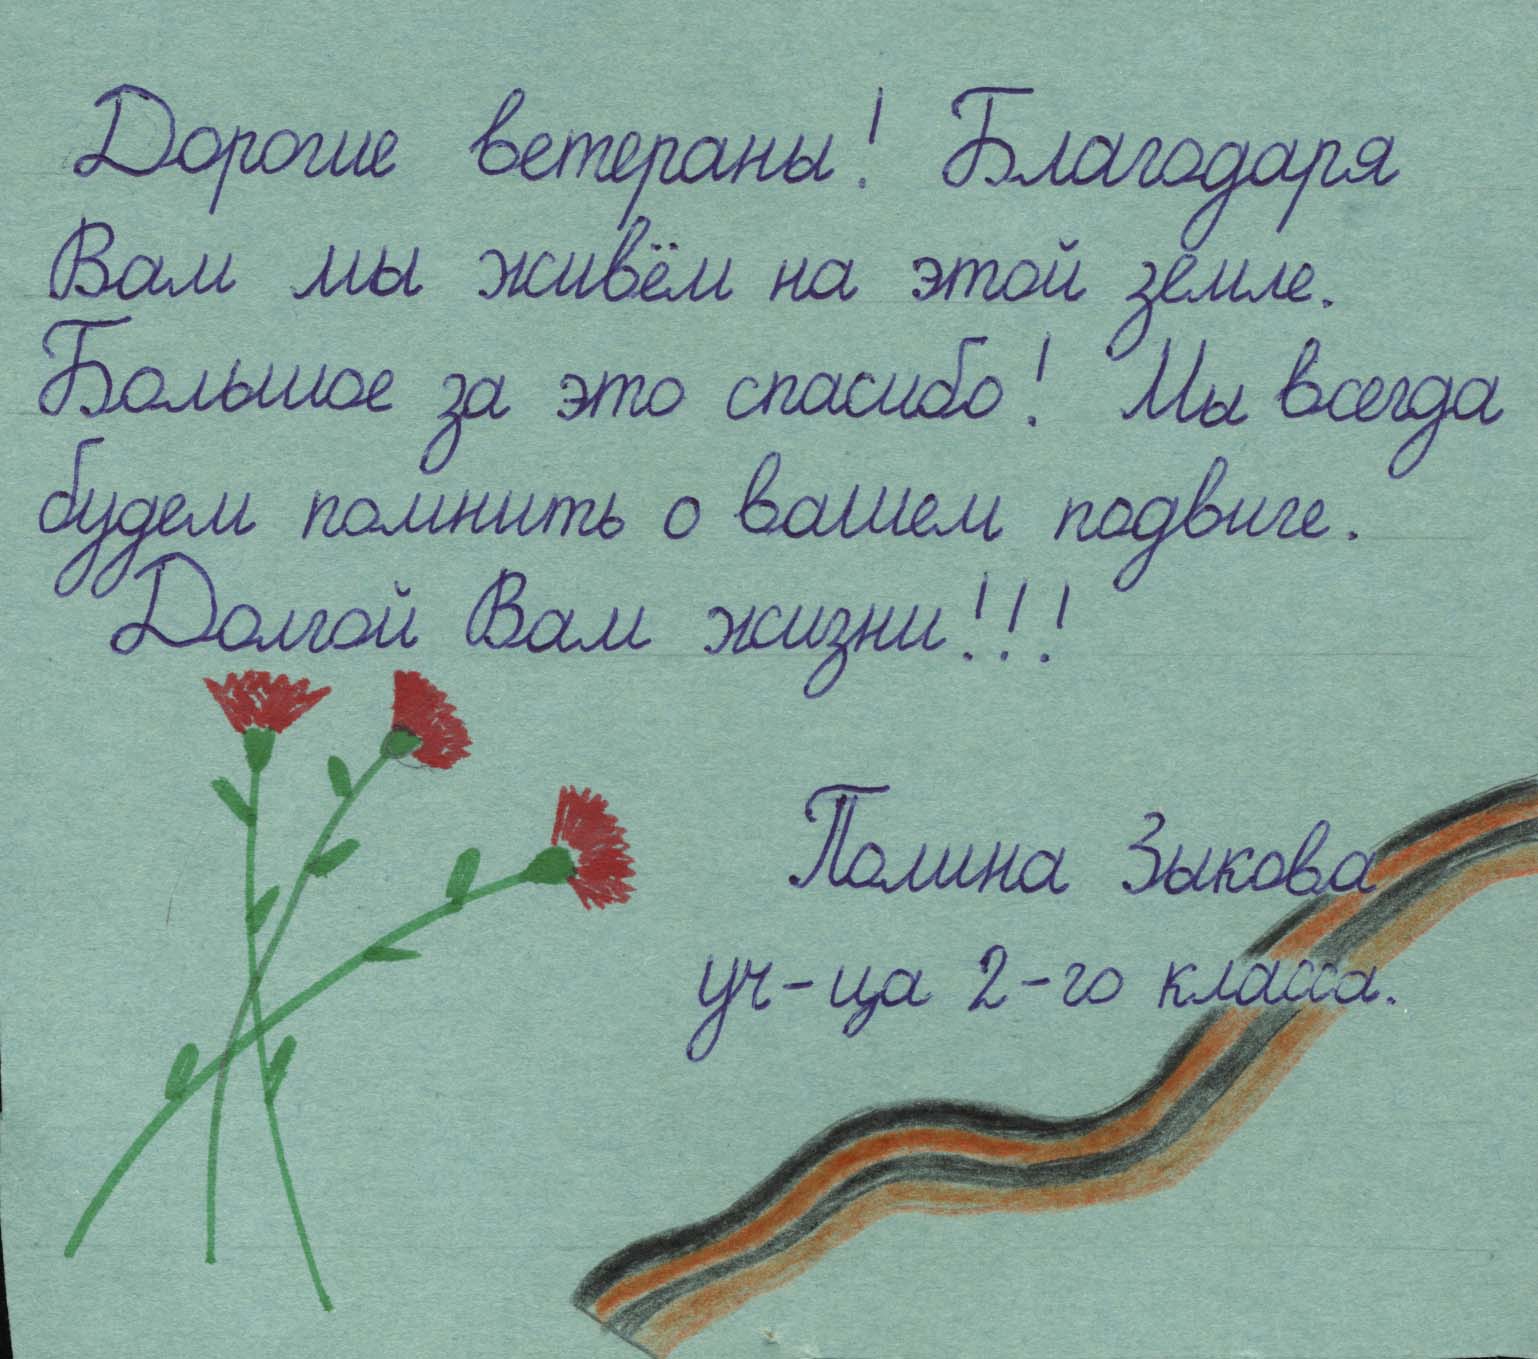 Дорогие ветераны! Благодаря
Вам мы живём на этой земле.
Большое за это спасибо! Мы всегда
будем помнить о вашем подвиге.
Долгой Вам жизни!!!
Полина Зыкова
уч-ца 2-го класса.